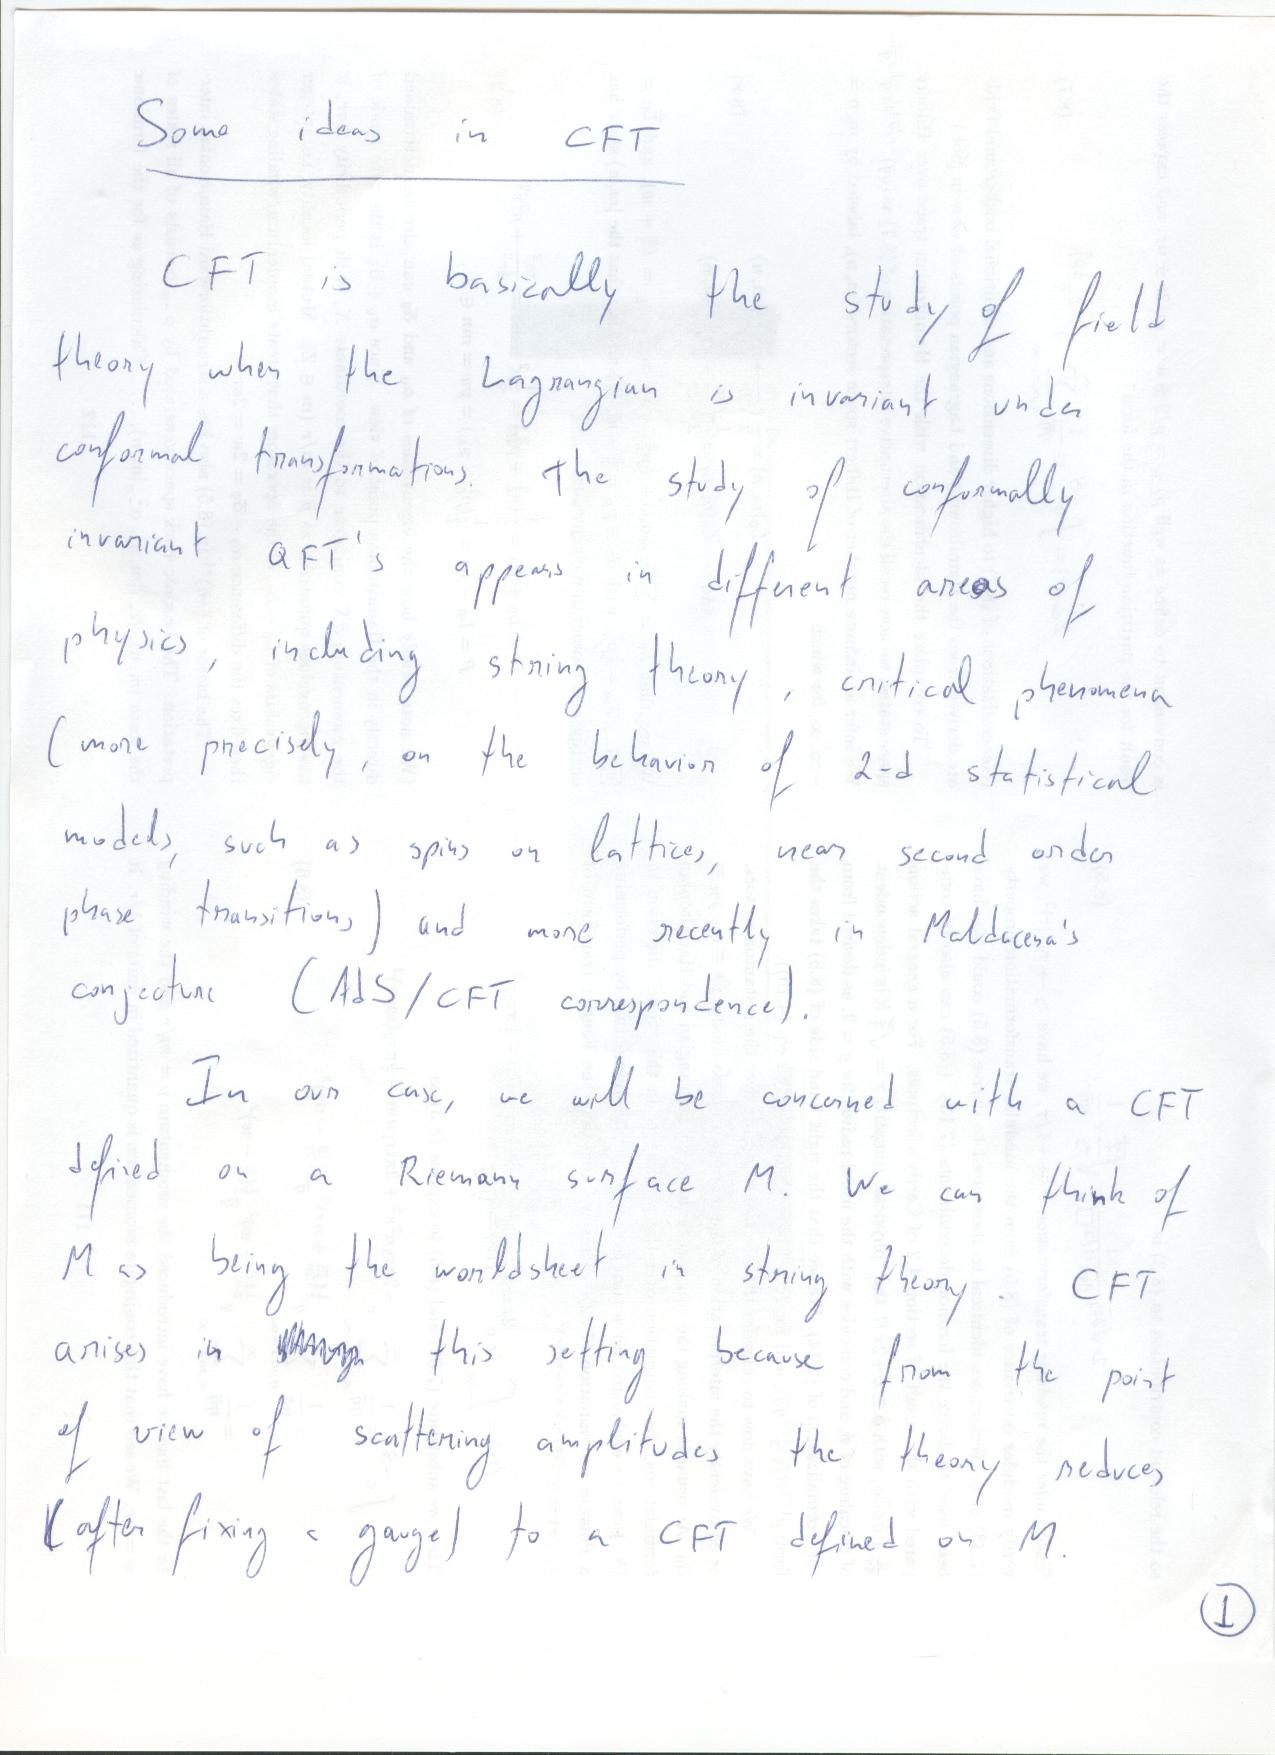 Some ideas in CFT
CFT is basically the study of field
theory when the Lagrangian is invariant under
conformal transformations. The study of conformally
invariant QFT's appears in different areas of
physics, including string theory, critical phenomena
(more precisely, on the behavior of 2-d statistical
models, such as spins on lattices, near second order
phase transitions) and more recently in Maldacena's
conjecture (AdS/CFT correspondence).
In our case, we will be concerned with a CFT
defined on a Riemann surface M. We can think of
M as being the worldsheet in string theory. CFT
arises in this setting because from the point
of view of scattering amplitudes the theory reduces
(after fixing a gauge) to a CFT defined on M.
1